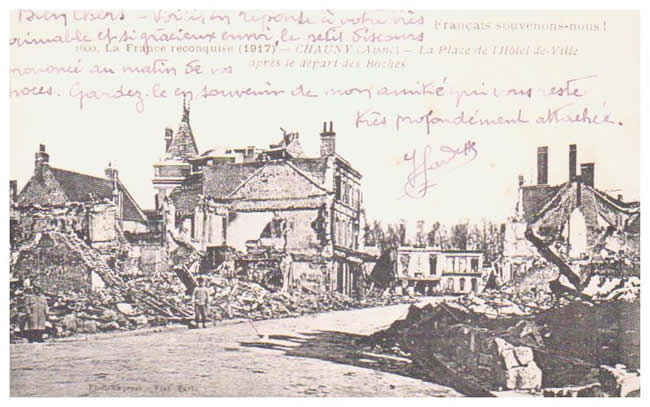 Bien chers - Voici, en réponse à votre très
Français souvenons-nous!
aimable et si gracieux envoi, le petit discours
1600. La France reconquise (1917) - CHAUNY (Aisne) - La Place de l'Hôtel-de-Ville
prononcé au matin de vos
après le départ des Boches
noces. Gardez-le en souvenir de mon amitié qui vous reste
très profondément attachée.